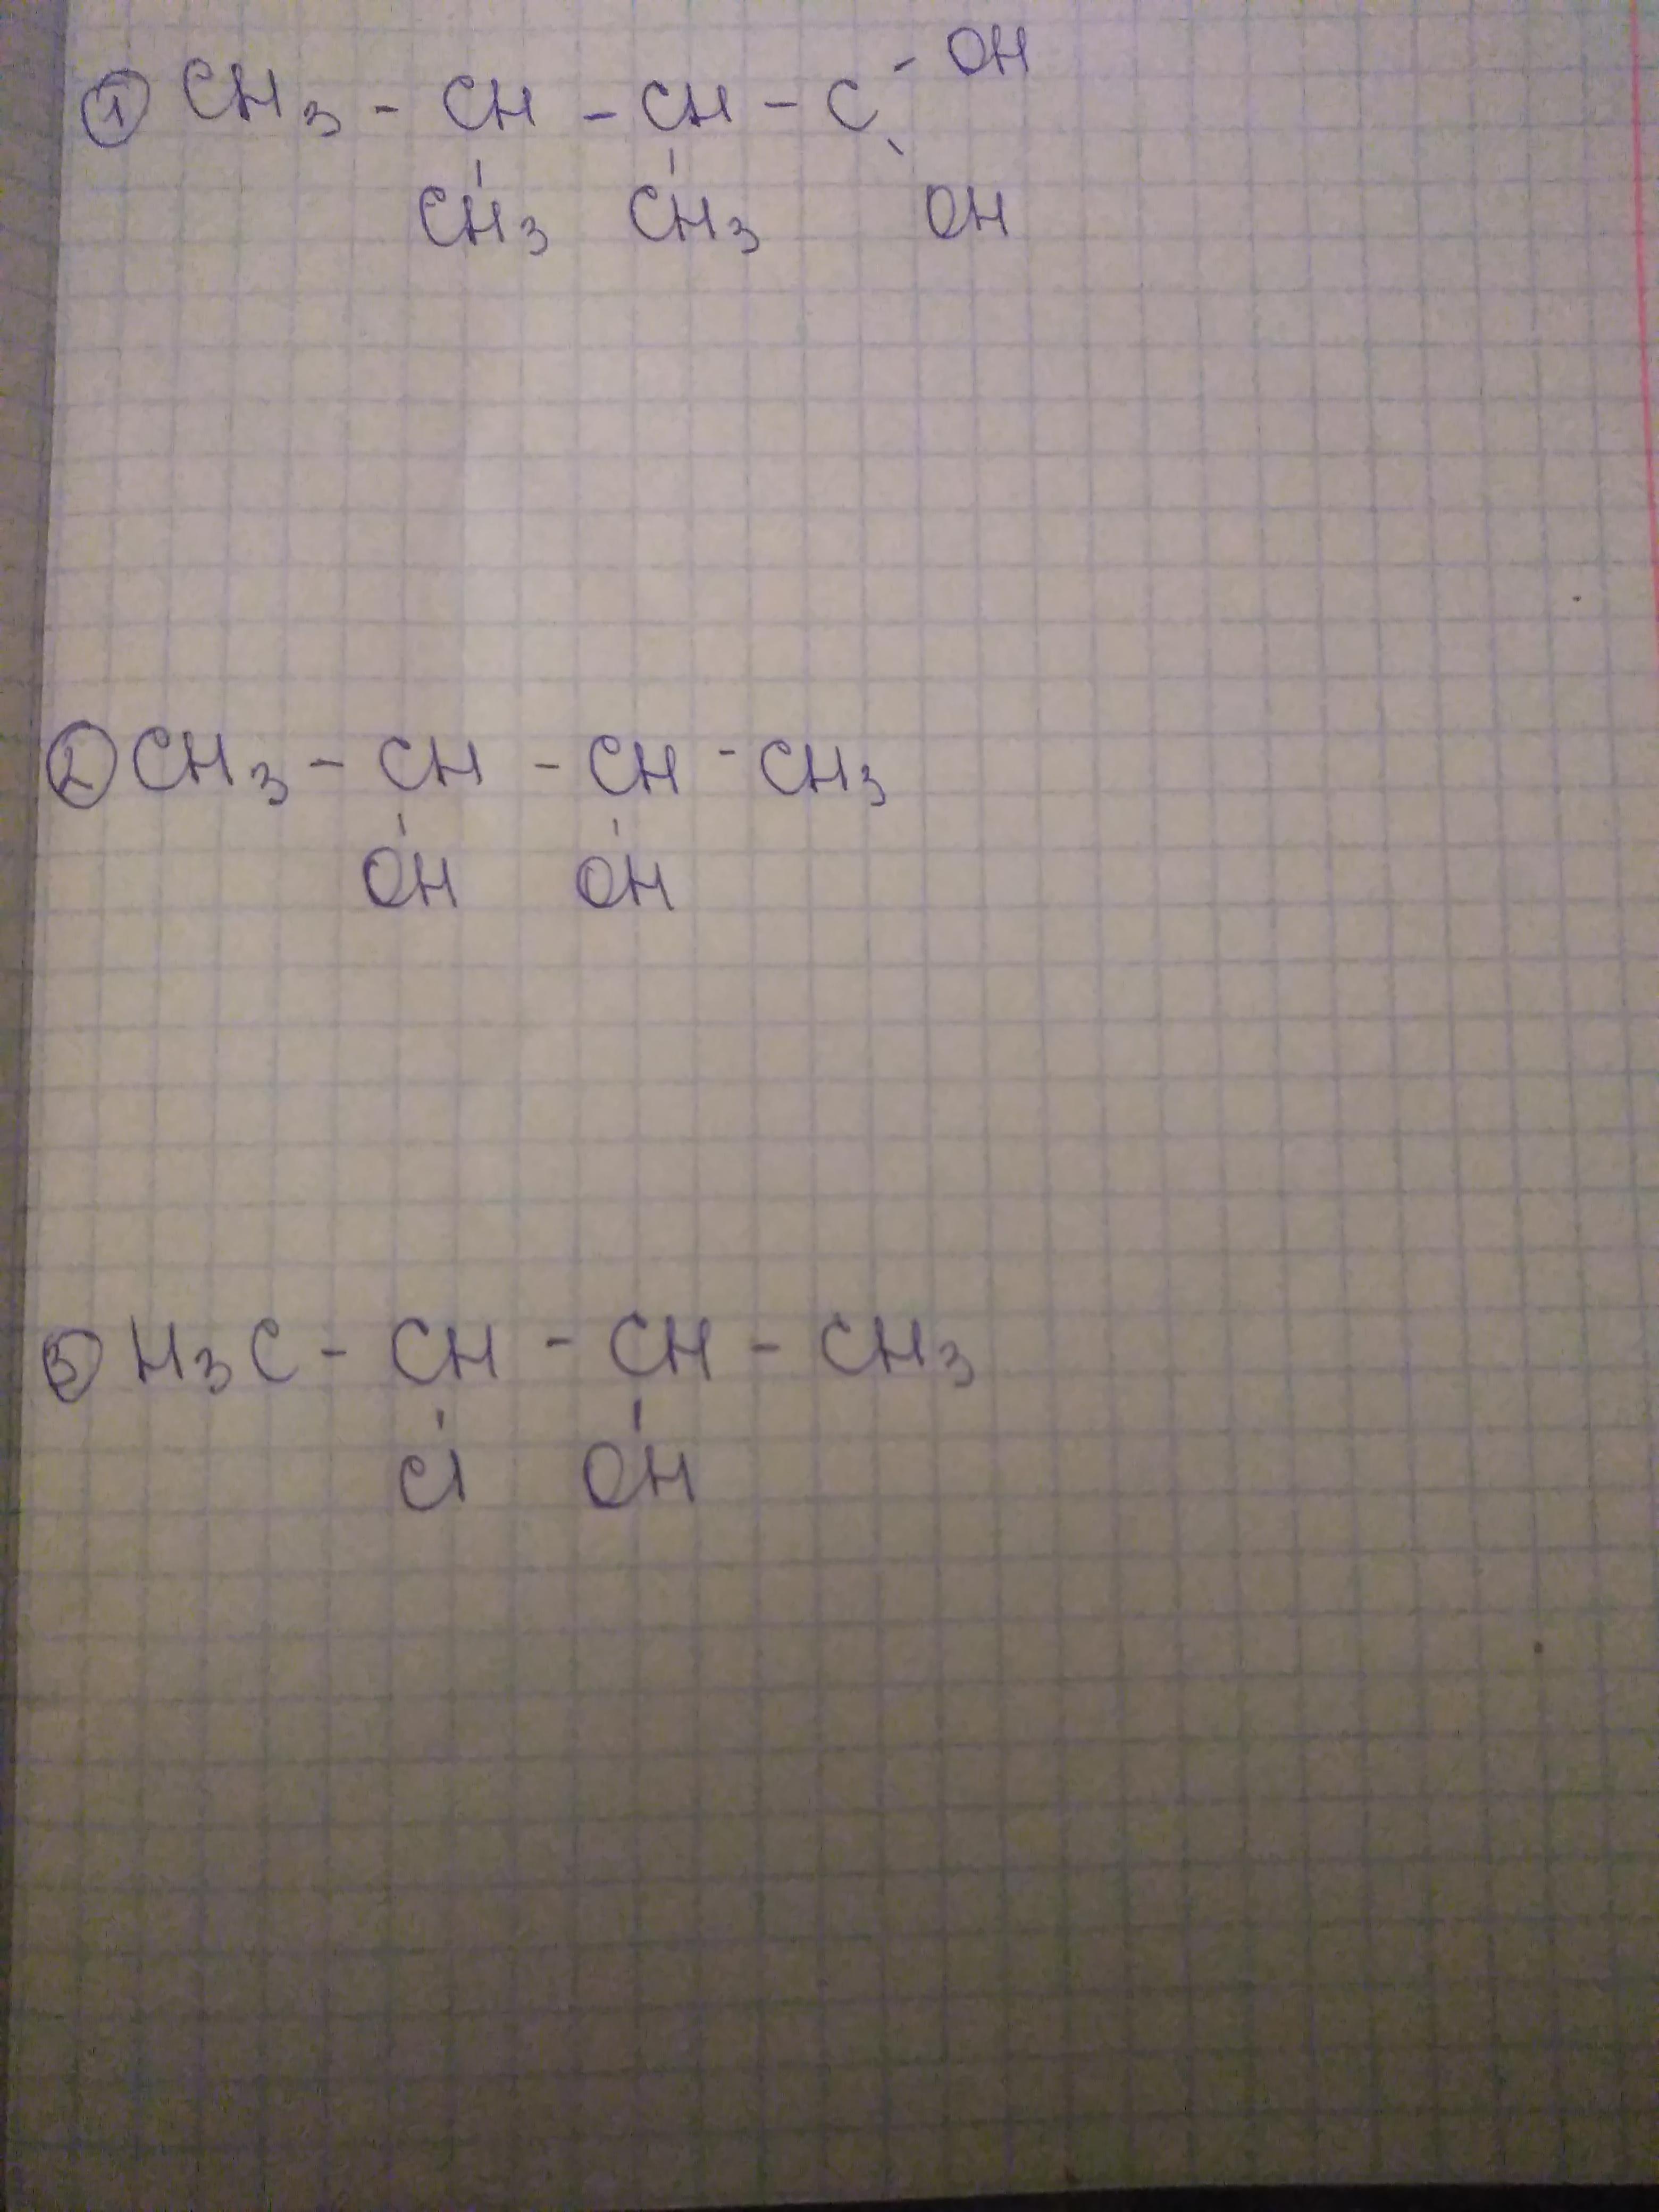 OH
① CH3 - CH - CH - C
CH3 CH3 OH
② CH3 - CH - CH - CH3
OH OH
③ H3C - CH - CH - CH3
Cl OH